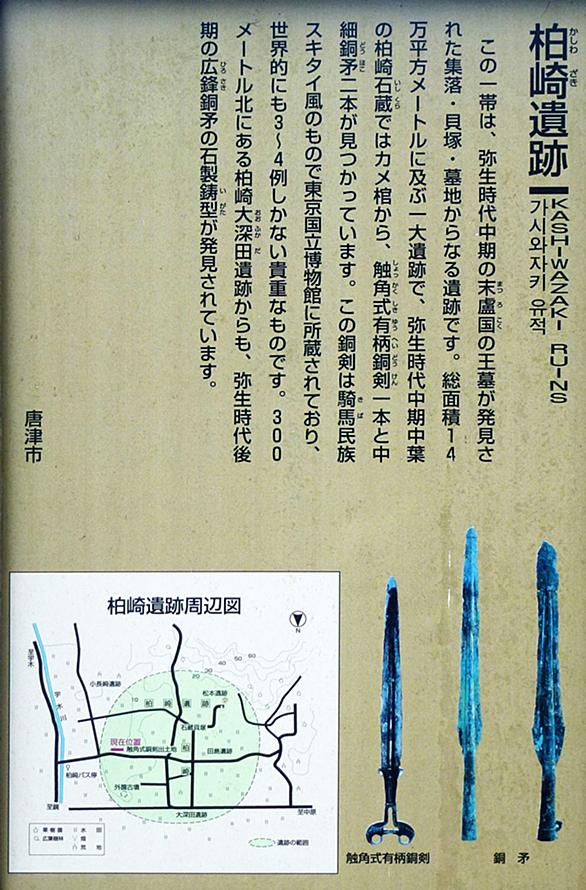 柏崎遺跡
かしわ ざき
KASHIWAZAKI RUINS
가시와자키 유적
この一帯は、弥生時代中期の末盧国の王墓が発見さ
れた集落・貝塚・墓地からなる遺跡です。総面積14
万平方メートルに及ぶ一大遺跡で、弥生時代中期中葉
の柏崎石蔵ではカメ棺から、触角式有柄銅剣一本と中
細銅矛二本が見つかっています。この銅剣は騎馬民族
スキタイ風のもので東京国立博物館に所蔵されており、
世界的にも3〜4例しかない貴重なものです。300
メートル北にある柏崎大深田遺跡からも、弥生時代後
期の広鋒銅矛の石製鋳型が発見されています。
唐津市
触角式有柄銅剣
銅矛
柏崎遺跡周辺図
N
至宇木
宇木川
小長崎遺跡
10
20
30
40
50
60
松本遺跡
柏崎遺跡
石蔵貝塚
現在位置
触角式銅剣出土地
田島遺跡
柏崎
柏崎バス停
外園古墳
至鏡
大深田遺跡
至中原
果樹園
水田
広葉樹林
畑
荒地
遺跡の範囲